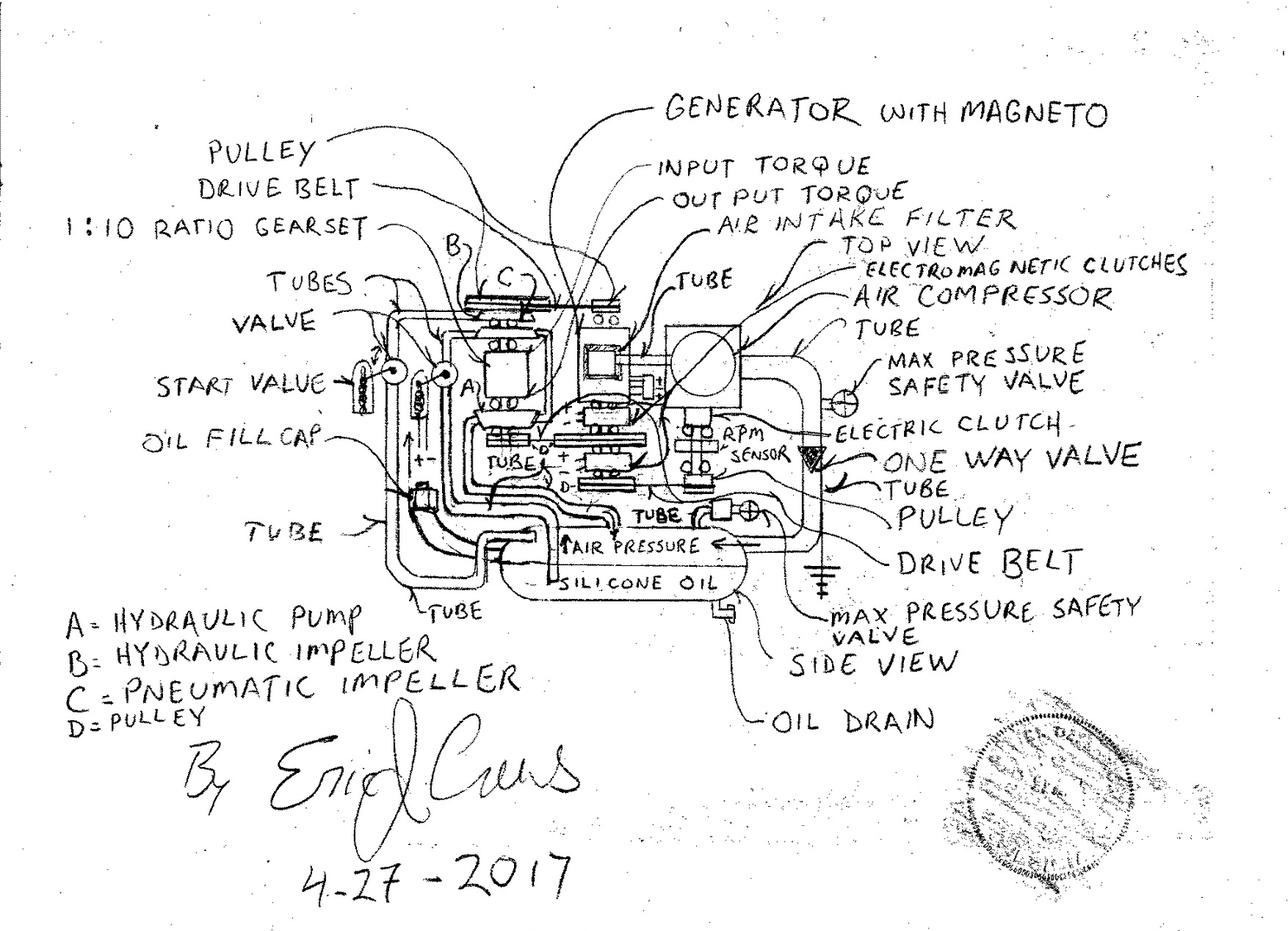 GENERATOR WITH MAGNETO
PULLEY
DRIVE BELT
1:10 RATIO GEARSET
INPUT TORQUE
OUT PUT TORQUE
AIR INTAKE FILTER
TOP VIEW
ELECTROMAGNETIC CLUTCHES
AIR COMPRESSOR
TUBE
B
C
TUBE
TUBES
VALVE
START VALVE
MAX PRESSURE
SAFETY VALVE
A
OIL FILL CAP
ELECTRIC CLUTCH
RPM
SENSOR
ONE WAY VALVE
TUBE
+ -
TUBE
D
PULLEY
TUBE
TUBE
AIR PRESSURE
DRIVE BELT
SILICONE OIL
TUBE
MAX PRESSURE SAFETY
VALVE
SIDE VIEW
OIL DRAIN
A = HYDRAULIC PUMP
B = HYDRAULIC IMPELLER
C = PNEUMATIC IMPELLER
D = PULLEY
By Eric J
4-27-2017